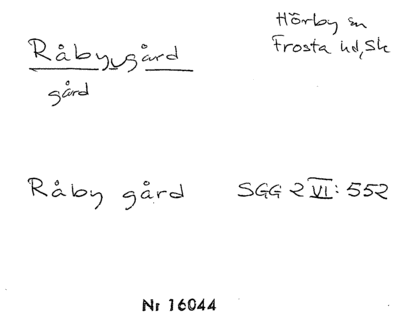 Råby gård
gård
Hörby sn
Frosta hd, Sk
Råby gård SGG 2 VI: 552
Nr 16044